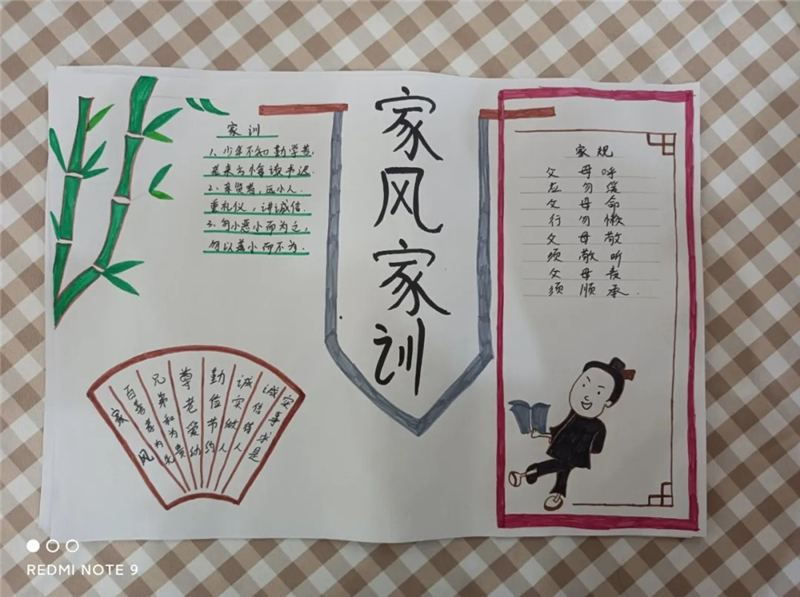 家训
1、少年不知勤学苦，
老来方悔读书迟.
2、亲贤者，远小人.
重礼仪，讲诚信.
3、勿小恶小而为之，
勿以善小而不为.
家风家训
家规
父母呼
应勿缓
父母命
行勿懒
父母
须敬听
父母责
须顺承.
家风
百善孝为先
兄弟和为贵
尊老爱幼
勤节约
诚实做人
诚信待人
实事求是
REDMI NOTE 9